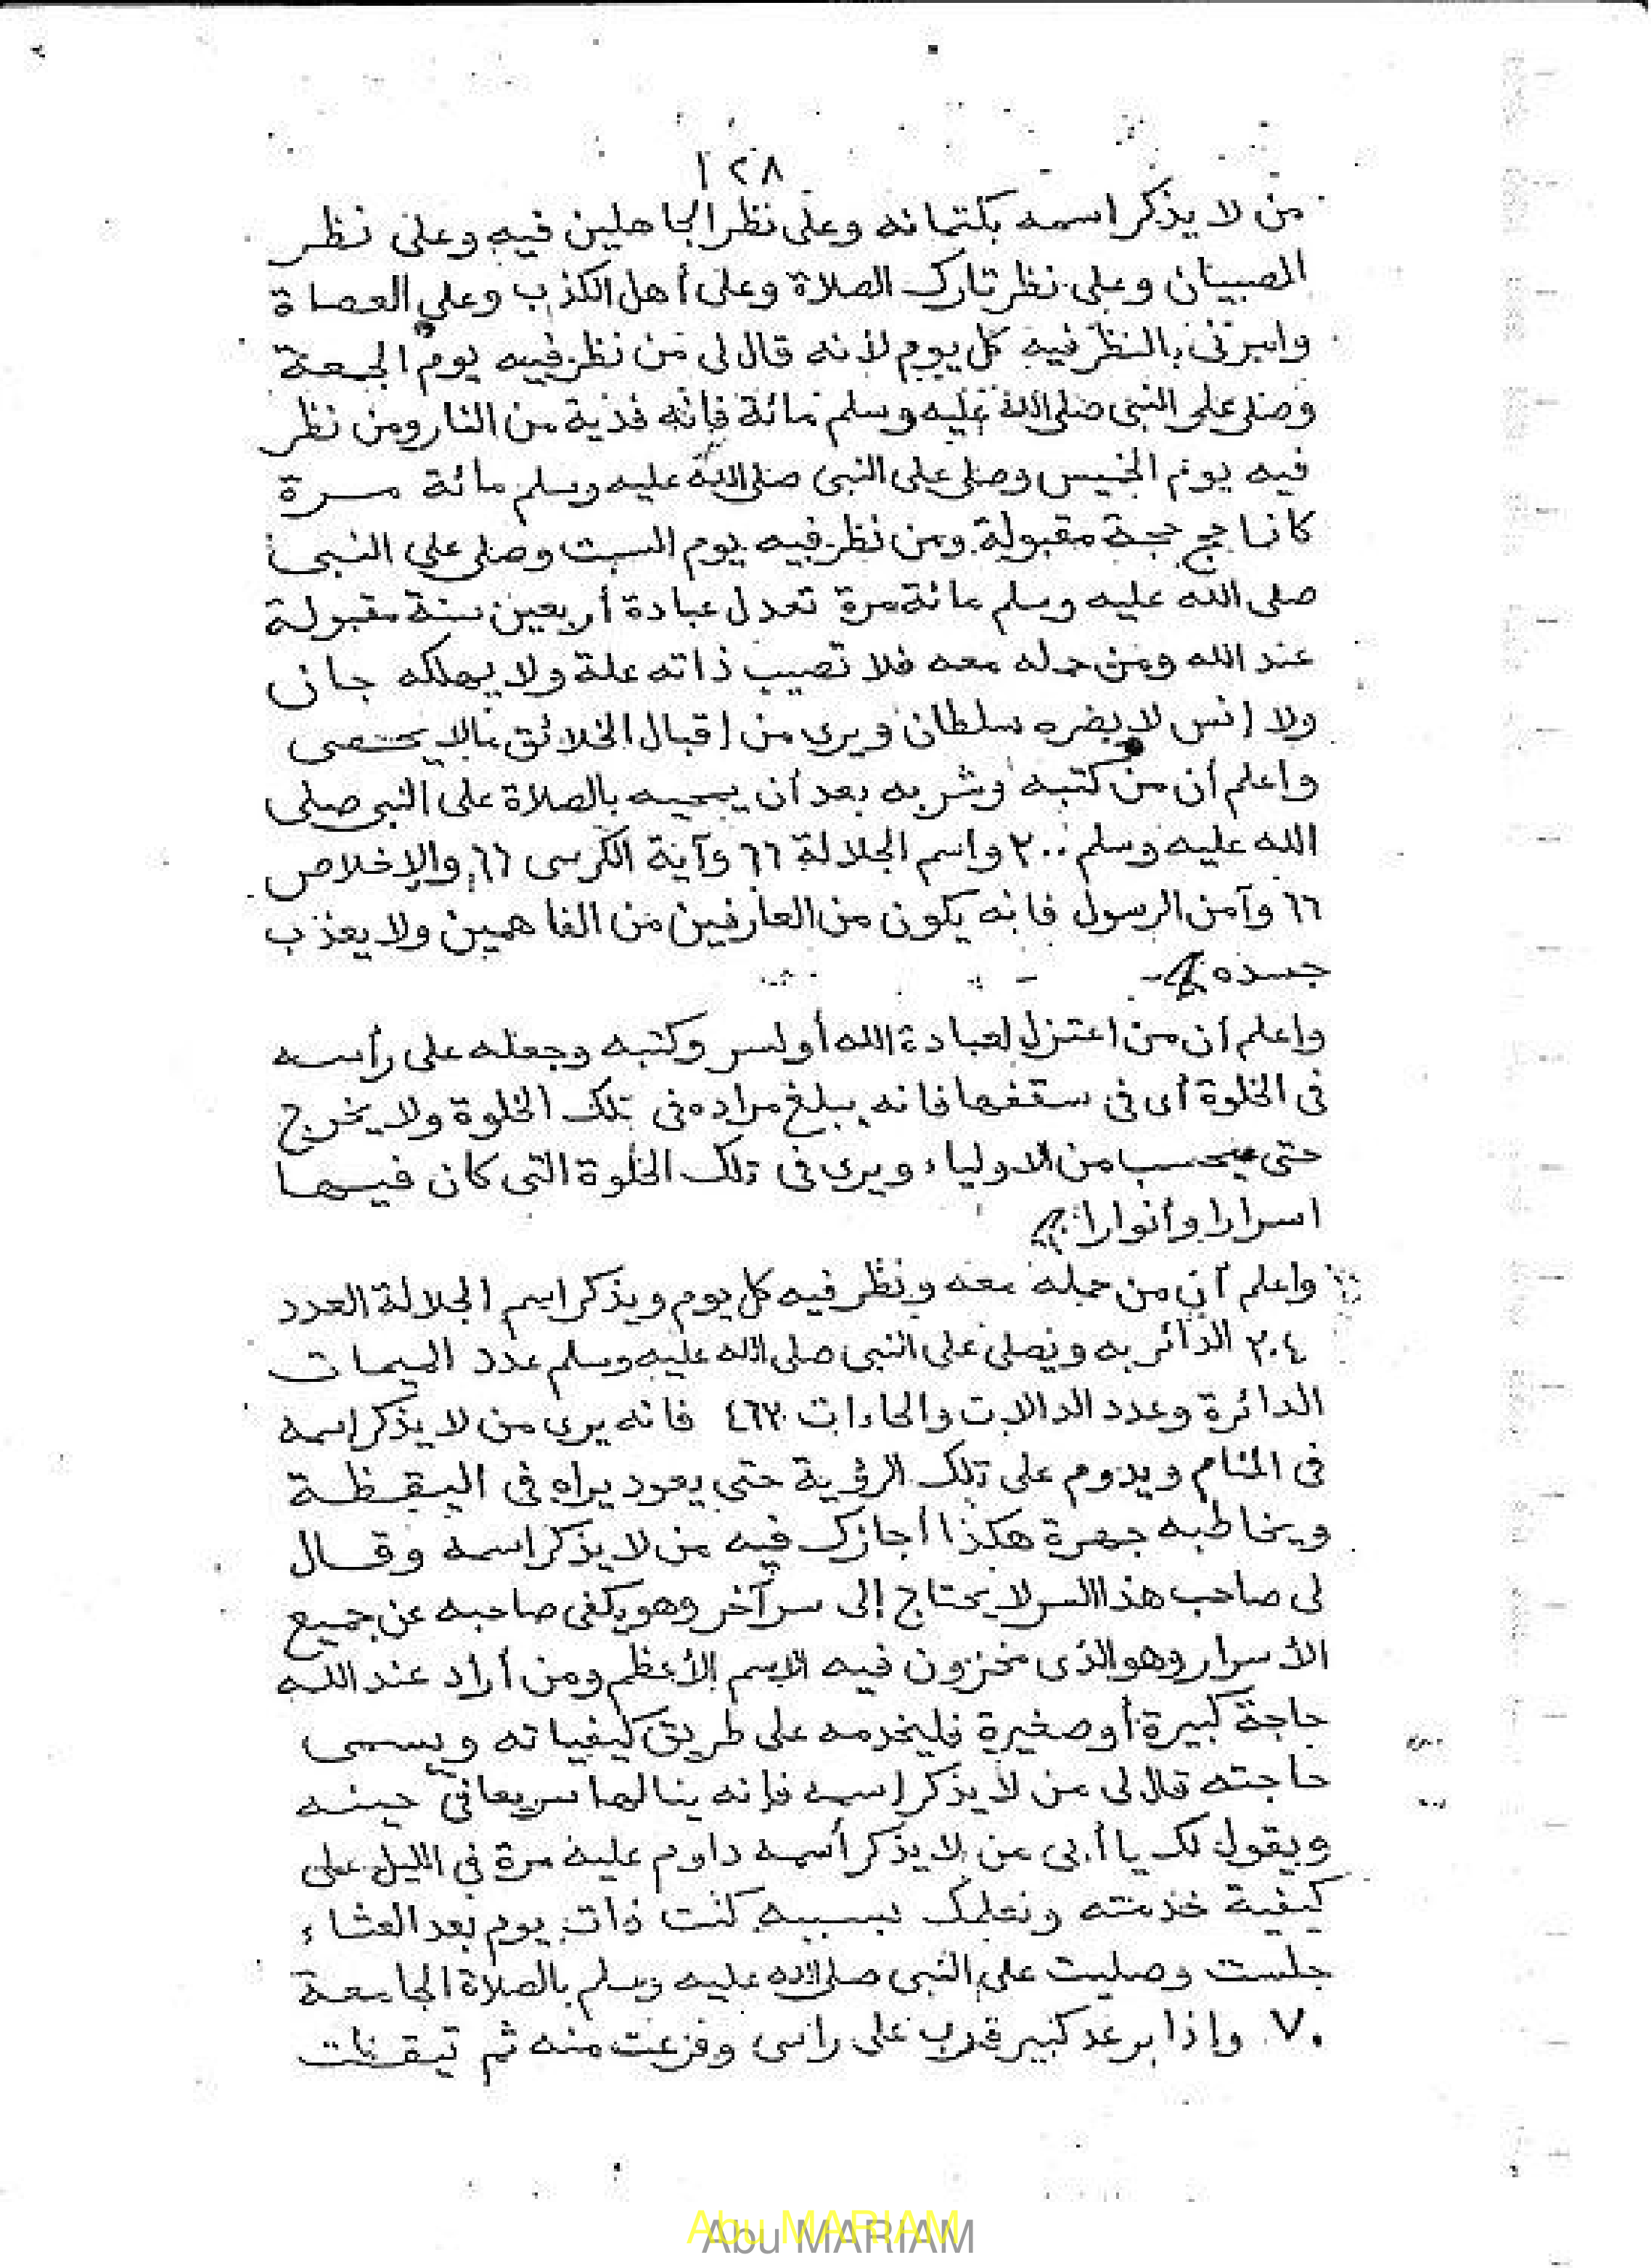 ١٢٨
من لا يذكر اسمه بكتمانه وعلى نظر الجاهلين فيه وعلى نظر
الصبيان وعلى نظر تارك الصلاة وعلى أهل الكذب وعلى العصاة
وامرنى بالنظر فيه كل يوم لأنه قال لى من نظر فيه يوم الجمعة
وصلى على النبى صلى الله عليه وسلم مائة فإنه فذية من النار ومن نظر
فيه يوم الخميس وصلى على النبى صلى الله عليه وسلم مائة مرة
كانما حج حجة مقبولة ومن نظر فيه يوم السبت وصلى على النبى
صلى الله عليه وسلم مائة مرة تعدل عبادة أربعين سنة مقبولة
عند الله ومن حمله معه فلا تصيب ذاته علة ولا يهلكه جان
ولا إنس لا يضره سلطان ويرى من إقبال الخلائق مالا يحصى
واعلم أن من كتبه وشربه بعد أن يمحيه بالصلاة على النبى صلى
الله عليه وسلم ٢٠٠ واسم الجلالة ٦٦ وآية الكرسى ٦٦ والإخلاص
٦٦ وآمن الرسول فانه يكون من العارفين من الفاهمين ولا يعذب
جسده
واعلم أن من اعتزل لعبادة الله أو لسر وكتبه وجعله على رأسه
فى الخلوة أى فى سقفها فانه يبلغ مراده فى تلك الخلوة ولا يخرج
حتى يحسب من الاولياء ويرى فى تلك الخلوة التى كان فيها
اسرارا وأنوارا
واعلم أن من حمله معه ونظر فيه كل يوم ويذكر اسم الجلالة العدد
٢٠٤ الدائر به ويصلى على النبى صلى الله عليه وسلم عدد الميمات
الدائرة وعدد الدالات والحاءات ٤٦٣ فانه يرى من لا يذكر اسمه
فى المنام ويدوم على تلك الرؤية حتى يعود يراه فى اليقظة
ويخاطبه جهرة هكذا أجازك فيه من لا يذكر اسمه وقال
لى صاحب هذا السر لا يحتاج إلى سر آخر وهو يكفى صاحبه عن جميع
الأسرار وهو الذى مخزون فيه الاسم الأعظم ومن أراد عند الله
حاجة كبيرة أو صغيرة فليخدمه على طريق كيفياته ويسمى
حاجته قال لى من لا يذكر اسمه فإنه ينالها سريعا فى حينه
ويقول لك يا أبى من لا يذكر أسمه داوم عليه مرة فى الليل على
كيفية خذمته ونعلمك بسببه كنت ذات يوم بعد العشاء
جلست وصليت على النبى صلى الله عليه وسلم بالصلاة الجامعة
٧٠ وإذا برعد كبير قرب على راسى وفزعت منه ثم تيقظت
Abu MARIAM